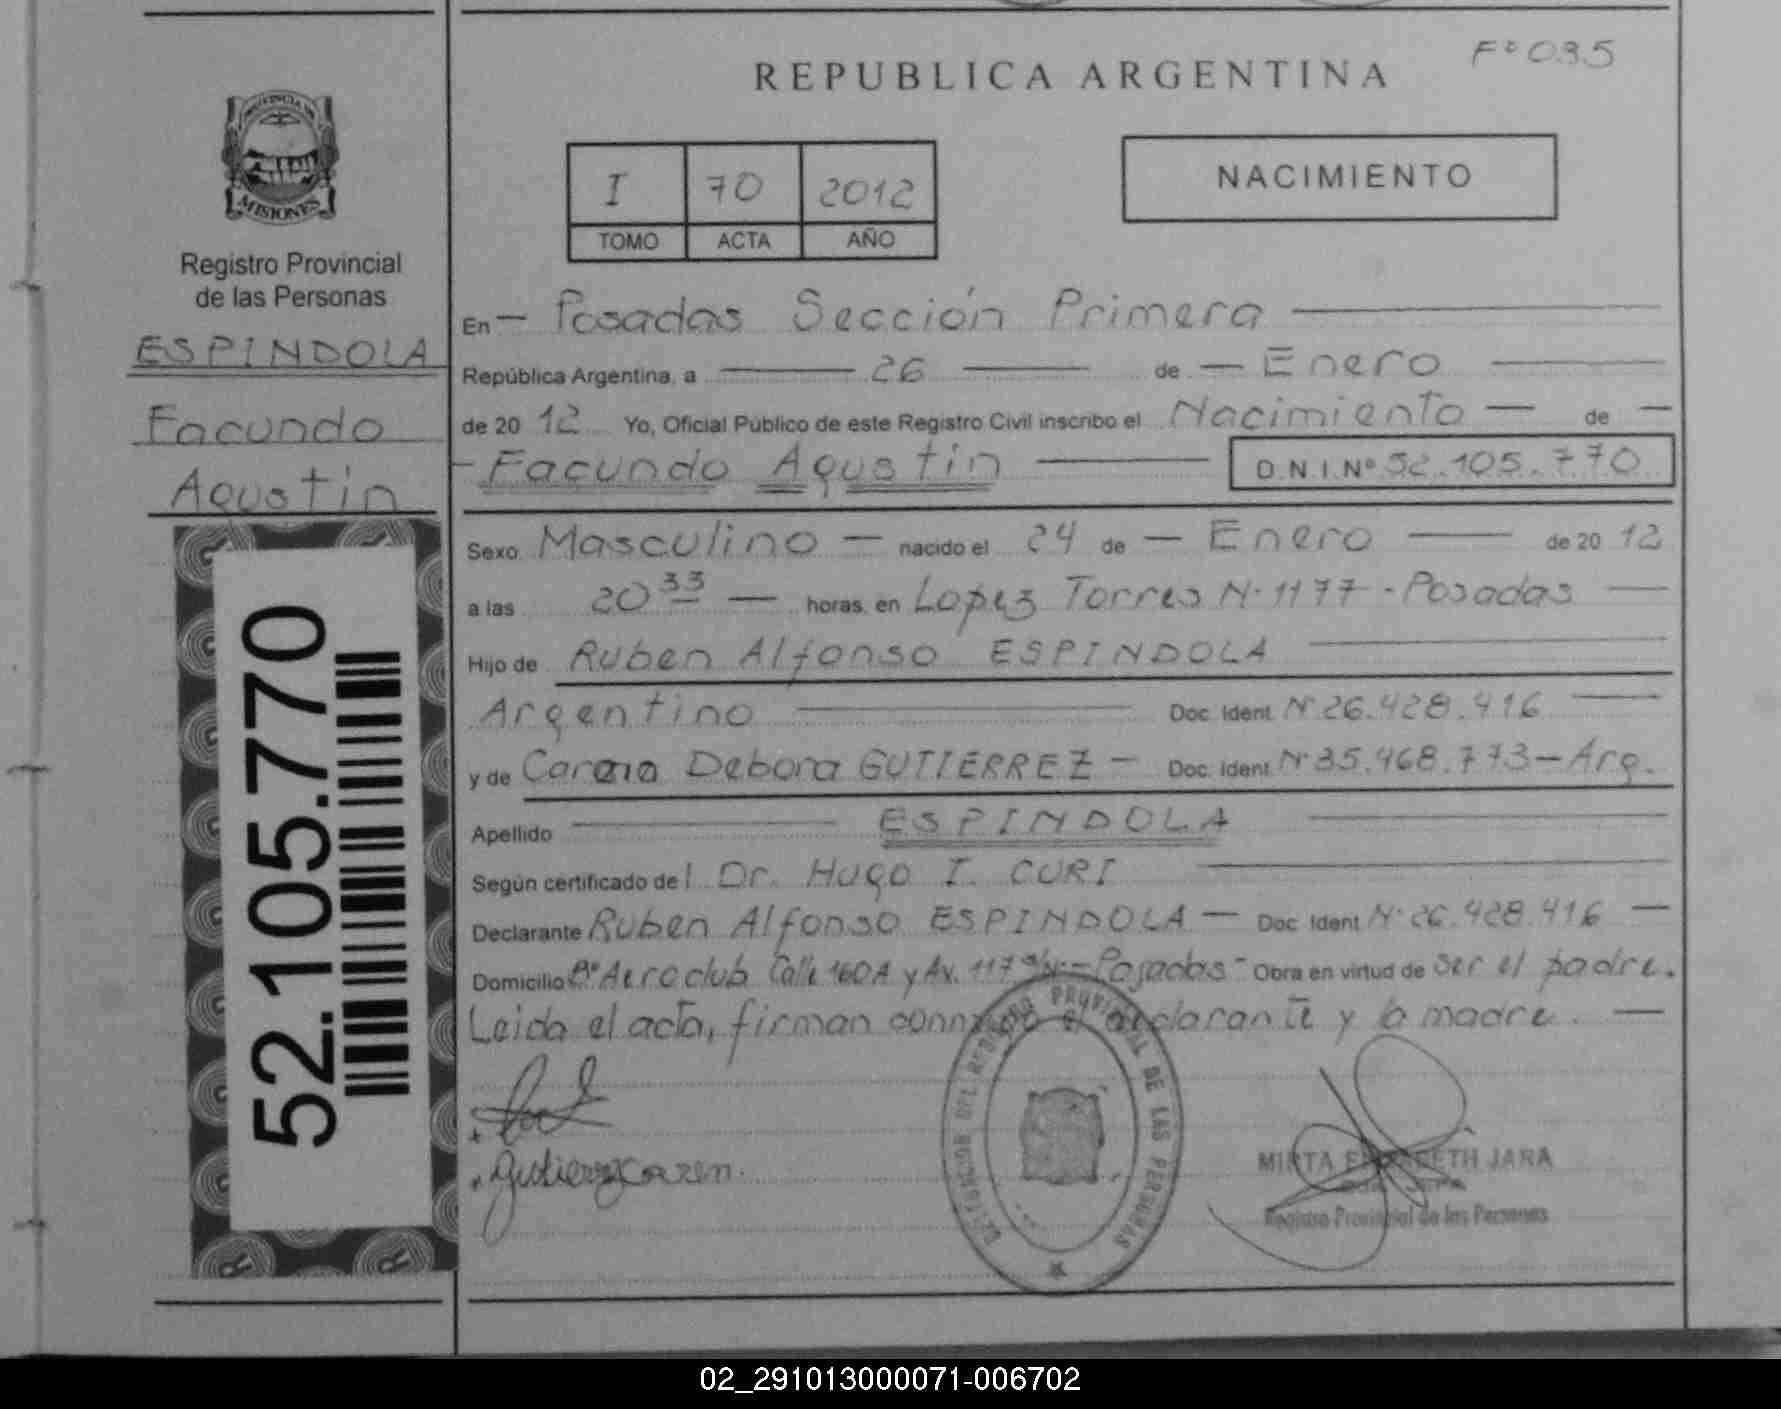 Fº 035
REPUBLICA ARGENTINA
PROVINCIA DE
MISIONES
Registro Provincial
de las Personas
ESPINDOLA
Facundo
Agustin
52.105.770
I 70 2012
TOMO ACTA AÑO
NACIMIENTO
En — Posadas Sección Primera
República Argentina, a 26 de — Enero
de 20 12 Yo, Oficial Público de este Registro Civil inscribo el Nacimiento — de —
- Facundo Agustin — D.N.I.Nº 52.105.770
Sexo Masculino — nacido el 24 de — Enero — de 20 12
a las 20 33 — horas, en Lopez Torres N· 1177 - Posadas —
Hijo de Ruben Alfonso ESPINDOLA
Argentino — Doc. Ident. Nº 26.428.416 —
y de Debora GUTIERREZ — Doc. Ident. Nº 35.468.773 — Arg.
Apellido — ESPINDOLA —
Según certificado del Dr. Hugo I. CURI
Declarante Ruben Alfonso ESPINDOLA — Doc. Ident. Nº 26.428.416 —
Domicilio Bº Aeroclub Calle 160A y Av. 117 s/Nº - Posadas - Obra en virtud de ser el padre.
Leida el acta, firman conmigo el declarante y la madre. —
Gutierrez Karen.
DELEGACION DEL REGISTRO PROVINCIAL DE LAS PERSONAS
MIRTA ELIZABETH JARA
Registro Provincial de las Personas
02_291013000071-006702